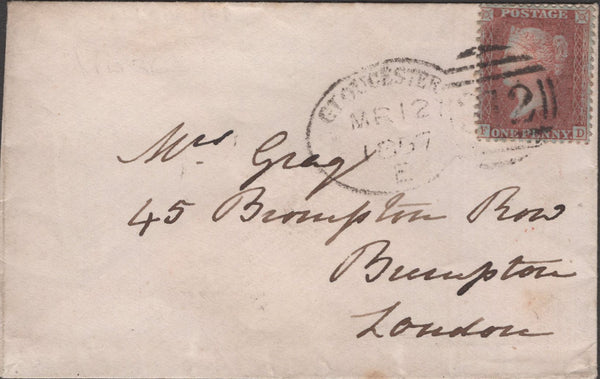 POSTAGE
GLOUCESTER
MR 12
1857
E
2
F D
ONE PENNY
Mrs Gray
45 Brompton Row
Brompton
London